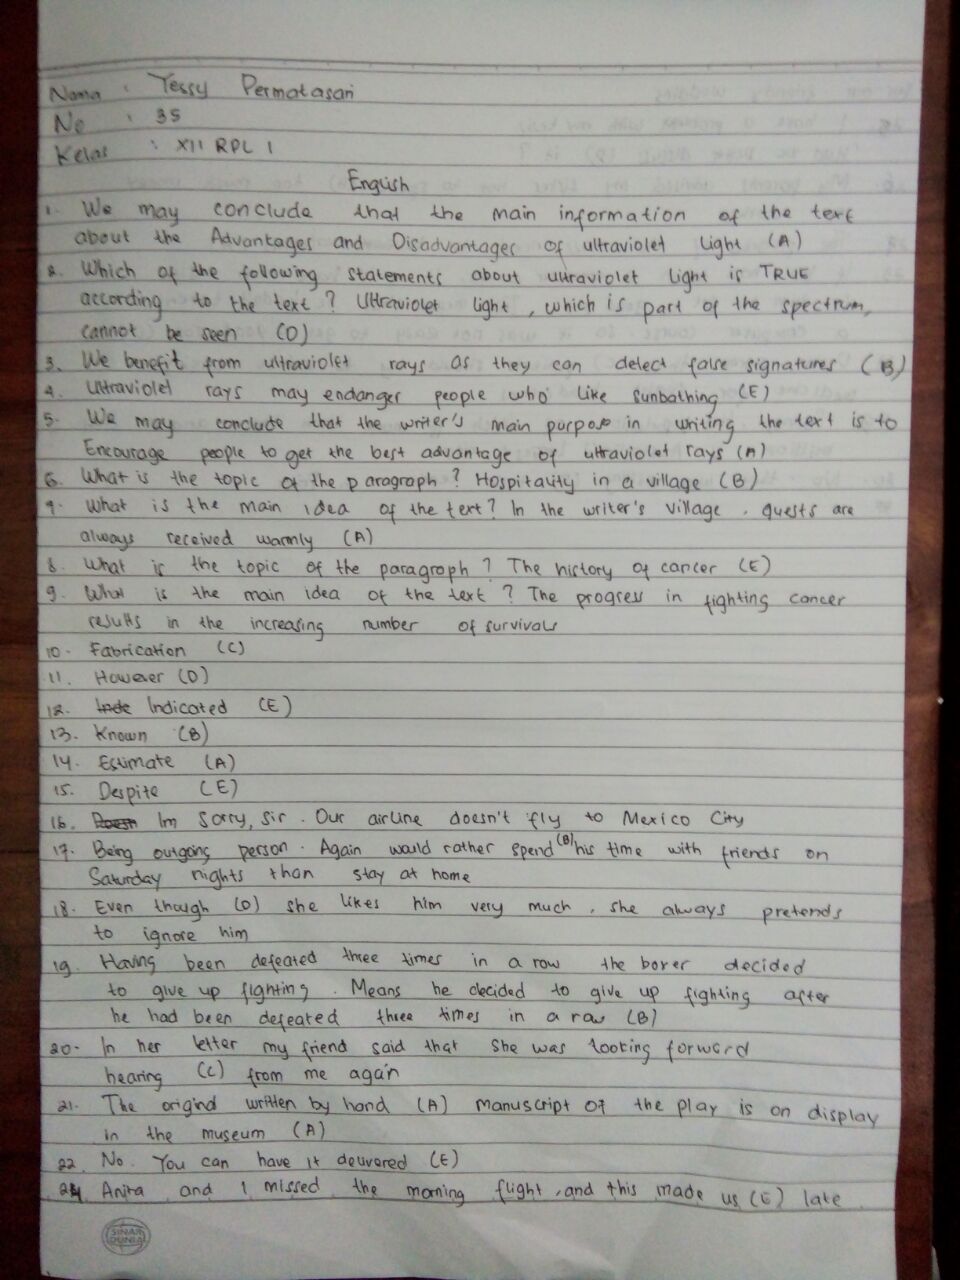 Nama : Tessy Permatasari
No : 35
Kelas : XII RPL 1
English
1. We may conclude that the main information of the text
about the Advantages and Disadvantages of ultraviolet Light (A)
2. Which of the following statements about ultraviolet light is TRUE
according to the text? Ultraviolet light, which is part of the spectrum,
cannot be seen (D)
3. We benefit from ultraviolet rays as they can detect false signatures (B)
4. Ultraviolet rays may endanger people who like sunbathing (E)
5. We may conclude that the writer's main purpose in writing the text is to
Encourage people to get the best advantage of ultraviolet rays (A)
6. What is the topic of the paragraph? Hospitality in a village (B)
7. What is the main idea of the text? In the writer's village, guests are
always received warmly (A)
8. What is the topic of the paragraph? The history of cancer (E)
9. What is the main idea of the text? The progress in fighting cancer
results in the increasing number of survivals
10. Fabrication (C)
11. However (D)
12. Indicated (E)
13. Known (B)
14. Estimate (A)
15. Despite (E)
16. Im Sorry, Sir. Our airline doesn't fly to Mexico City
17. Being outgoing person. Again would rather spend (B) his time with friends on
Saturday nights than stay at home
18. Even though (D) she likes him very much, she always pretends
to ignore him
19. Having been defeated three times in a row the boxer decided
to give up fighting. Means he decided to give up fighting after
he had been defeated three times in a row (B)
20. In her letter my friend said that she was looking forward
hearing (C) from me again
21. The original written by hand (A) manuscript of the play is on display
in the museum (A)
22. No. You can have it delivered (E)
24 Anita and I missed the morning flight, and this made us (E) late
SINAR
DUNIA